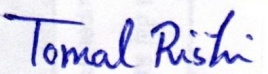 Tomal Rishi